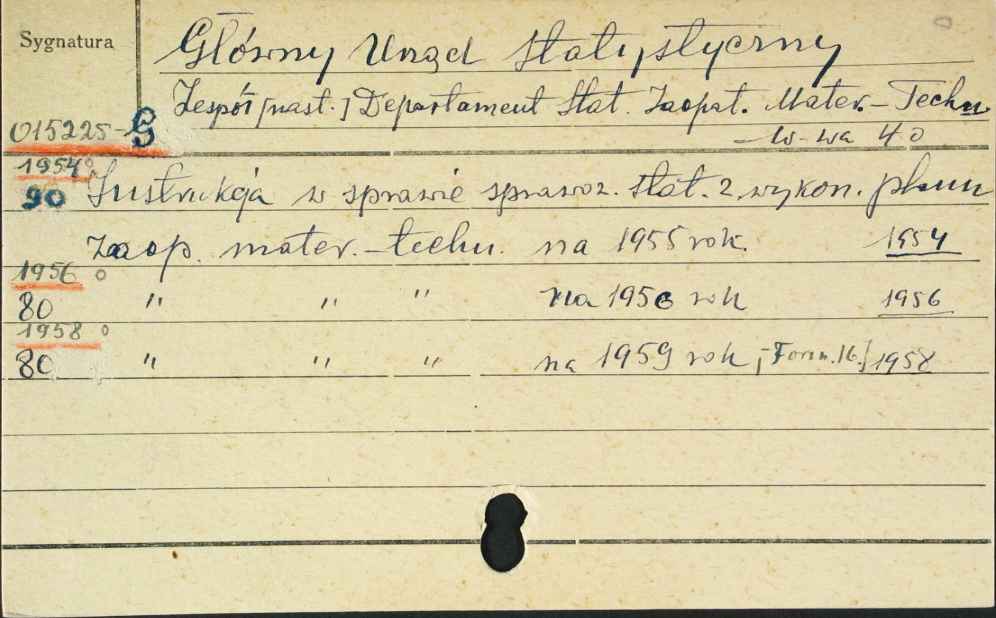 Sygnatura
Główny Urząd Statystyczny
Zespół [nast.] Departament Stat. Zaopat. Mater.-Techn
015225-G
W-wa 4°
1954°
90 Instrukcja w sprawie sprawoz. stat. z wykon. planu
zaop. mater.-techn. na 1955 rok. 1954
1956 °
80 " " " na 1956 rok 1956
1958 °
80 " " " na 1959 rok, [Form. 16.] 1958